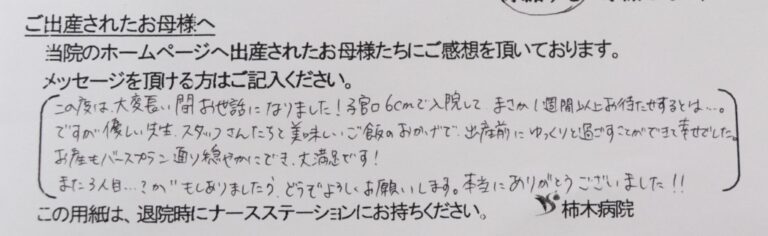 ご出産されたお母様へ
当院のホームページへ出産されたお母様たちにご感想を頂いております。
メッセージを頂ける方はご記入ください。
この度は、大変長い間お世話になりました!子宮口6cmで入院して まさか1週間以上お待たせするとは…。
ですが優しい先生、スタッフさんたちと美味しいご飯のおかげで、出産前にゆっくりと過ごすことができて幸せでした。
お産もバースプラン通り穏やかにでき、大満足です!
また3人目…?がもしありましたら、どうぞよろしくお願いします。本当にありがとうございました!!
この用紙は、退院時にナースステーションにお持ちください。 柿木病院